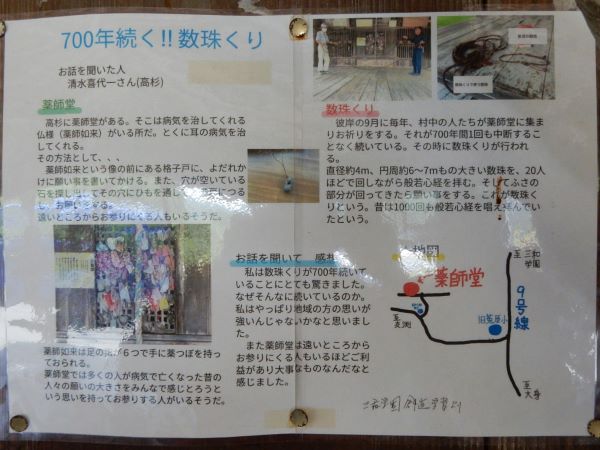 700年続く!! 数珠くり
お話を聞いた人
清水喜代一さん(高杉)
薬師堂
高杉に薬師堂がある。そこは病気を治してくれる
仏様（薬師如来）がいる所だ。とくに耳の病気を治
してくれる。
その方法として、、、
薬師如来という像の前にある格子戸に、よだれか
けに願い事を書いてかける。また、穴が空いている
石を探し出してその穴にひもを通して
もし、お願いをする。
遠いところからお参りにくる人もいるそうだ。
薬師如来は足の指が６つで手に薬つぼを持っ
ておられる。
薬師堂では多くの人が病気で亡くなった昔の
人々の願いの大きさをみんなで感じとろうと
いう思いを持ってお参りする人がいるそうだ。
数珠くり
彼岸の9月に毎年、村中の人たちが薬師堂に集ま
りお祈りをする。それが700年間1回も中断するこ
となく続いている。その時に数珠くりが行われ
る。
直径約4m、円周約6〜7mもの大きい数珠を、20人
ほどで回しながら般若心経を拝む。そしてふさの
部分が回ってきたら願い事をする。これが数珠く
りという。昔は1000回も般若心経を唱え拝んでい
たという。
お話を聞いて 感想
私は数珠くりが700年続いて
いることにとても驚きました。
なぜそんなに続いているのか。
私はやっぱり地域の方の思いが
強いんじゃないかなと思いまし
た。
また薬師堂は遠いところから
お参りにくる人もいるほどご利
益があり大事なものなんだなと
感じました。
地図
薬師堂
9号線
至三和
学園
至